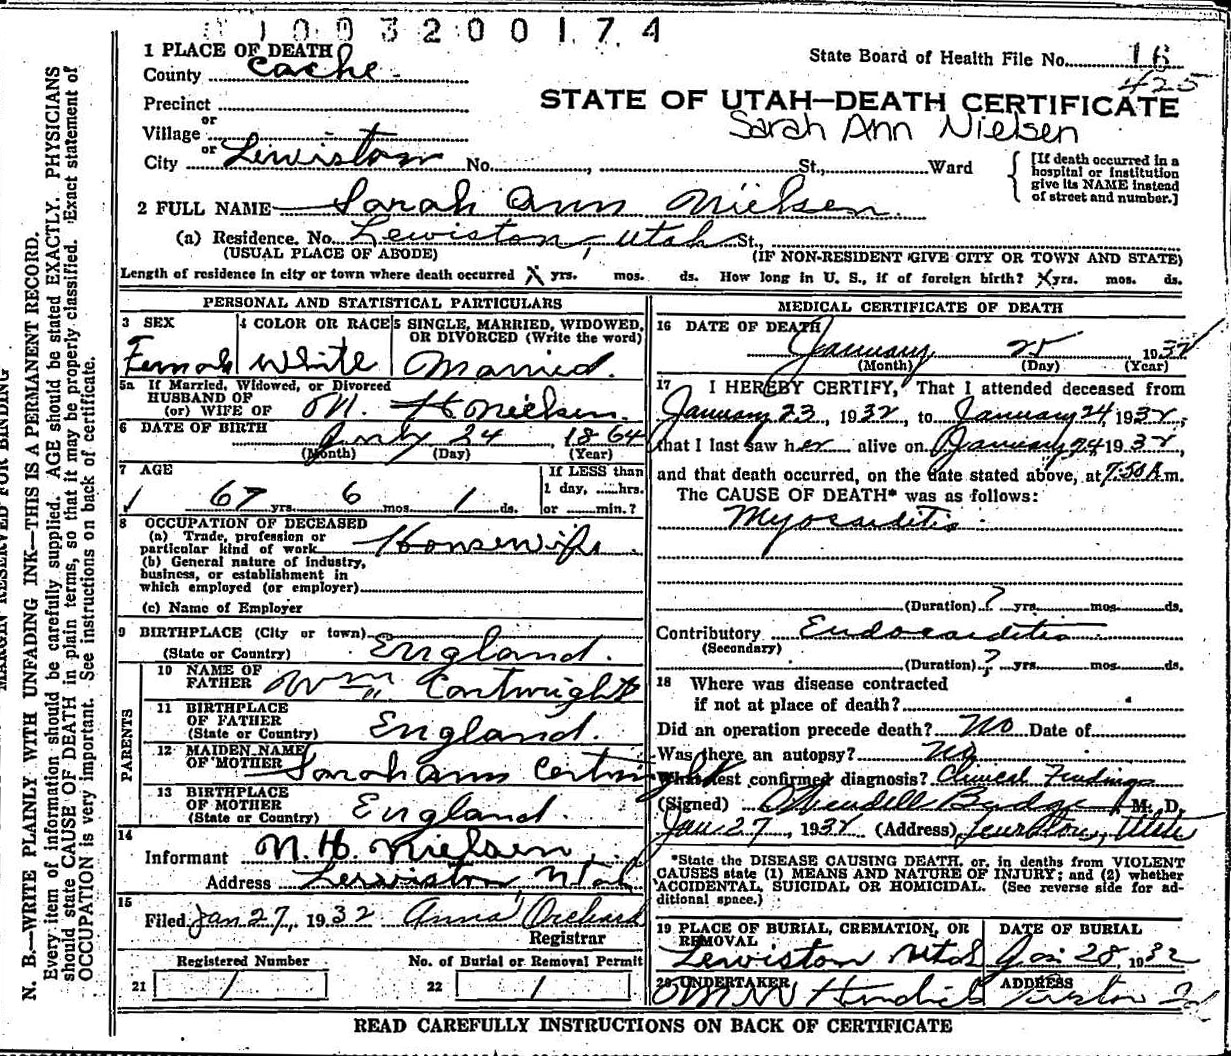 1003200174
1 PLACE OF DEATH
County Cache
State Board of Health File No. 16
425
Precinct
or
Village
or
City Lewiston No. , St., Ward
STATE OF UTAH—DEATH CERTIFICATE
Sarah Ann Nielsen
[If death occurred in a
hospital or institution
give its NAME instead
of street and number.]
2 FULL NAME Sarah Ann Nielsen
(a) Residence. No. Lewiston, Utah St.,
(USUAL PLACE OF ABODE) (IF NON-RESIDENT GIVE CITY OR TOWN AND STATE)
Length of residence in city or town where death occurred X yrs. mos. ds. How long in U. S., if of foreign birth? X yrs. mos. ds.
PERSONAL AND STATISTICAL PARTICULARS
3 SEX
Female
4 COLOR OR RACE
White
5 SINGLE, MARRIED, WIDOWED,
OR DIVORCED (Write the word)
Married.
5a If Married, Widowed, or Divorced
HUSBAND OF
(or) WIFE OF H Nielsen.
6 DATE OF BIRTH July 24, 1864
(Month) (Day) (Year)
7 AGE
67 yrs. 6 mos. 1 ds.
If LESS than
1 day, ......hrs.
or ......min.?
8 OCCUPATION OF DECEASED
(a) Trade, profession or
particular kind of work Housewife
(b) General nature of industry,
business, or establishment in
which employed (or employer)
(c) Name of Employer
9 BIRTHPLACE (City or town)
(State or Country) England.
PARENTS
10 NAME OF
FATHER Wm Cartwright
11 BIRTHPLACE
OF FATHER
(State or Country) England.
12 MAIDEN NAME
OF MOTHER Sarah Ann Cartwright
13 BIRTHPLACE
OF MOTHER
(State or Country) England
14
Informant N. H. Nielsen,
Address Lewiston Utah
15
Filed Jan 27, 1932 Anna Orchard
Registrar
Registered Number
21 1
No. of Burial or Removal Permit
22 1
MEDICAL CERTIFICATE OF DEATH
16 DATE OF DEATH
January 25 1932
(Month) (Day) (Year)
17 I HEREBY CERTIFY, That I attended deceased from
January 23, 1932, to January 24, 1932,
that I last saw her alive on January 24 1932
and that death occurred, on the date stated above, at 7:50 A.m.
The CAUSE OF DEATH* was as follows:
Myocarditis
(Duration) ? yrs. mos. ds.
Contributory Endocarditis
(Secondary)
(Duration) ? yrs. mos. ds.
18 Where was disease contracted
if not at place of death?
Did an operation precede death? No Date of
Was there an autopsy? No
What test confirmed diagnosis? Clinical Findings
(Signed) Wendell Budge M. D.
Jan 27, 1932 (Address) Lewiston, Utah
*State the DISEASE CAUSING DEATH, or, in deaths from VIOLENT
CAUSES state (1) MEANS AND NATURE OF INJURY; and (2) whether
ACCIDENTAL, SUICIDAL OR HOMICIDAL. (See reverse side for ad-
ditional space.)
19 PLACE OF BURIAL, CREMATION, OR
REMOVAL
Lewiston Utah
DATE OF BURIAL
Jan 28, 1932
20 UNDERTAKER
Hendricks
ADDRESS
READ CAREFULLY INSTRUCTIONS ON BACK OF CERTIFICATE
MARGIN RESERVED FOR BINDING
N. B.—WRITE PLAINLY WITH UNFADING INK—THIS IS A PERMANENT RECORD.
Every item of information should be carefully supplied. AGE should be stated EXACTLY. PHYSICIANS
should state CAUSE OF DEATH in plain terms, so that it may be properly classified. Exact statement of
OCCUPATION is very important. See instructions on back of certificate.